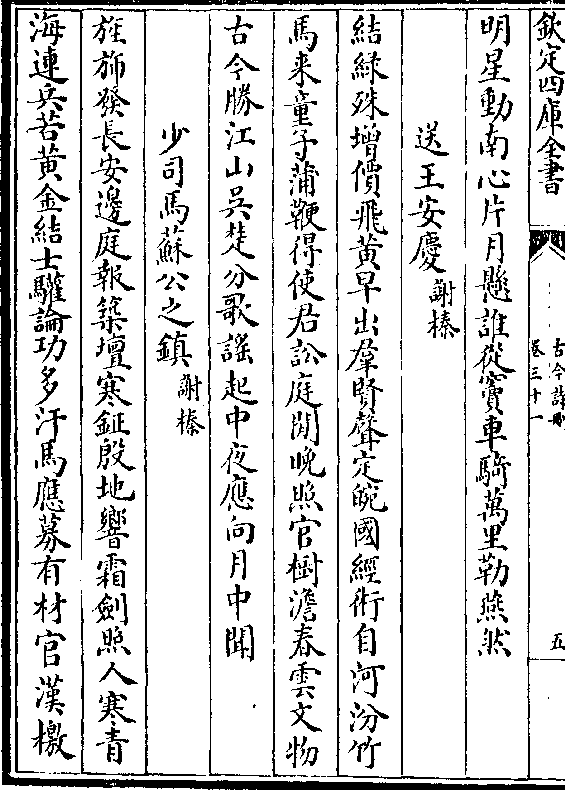 欽定四庫全書
古今詩刪
卷三十一
五
明星動南心片月懸誰從竇車騎萬里勒燕然
送王安慶　謝榛
結緑殊增價飛黄早出羣賢聲定皖國經術自河汾竹
馬来童子蒲鞭得使君訟庭閒晚照官樹澹春雲文物
古今勝江山吳楚分歌謡起中夜應向月中聞
少司馬蘇公之鎮　謝榛
旌斾發長安邊庭報築壇寒鉦殷地響霜劍照人寒青
海連兵苦黄金結士驩論功多汗馬應募有材官漢檄